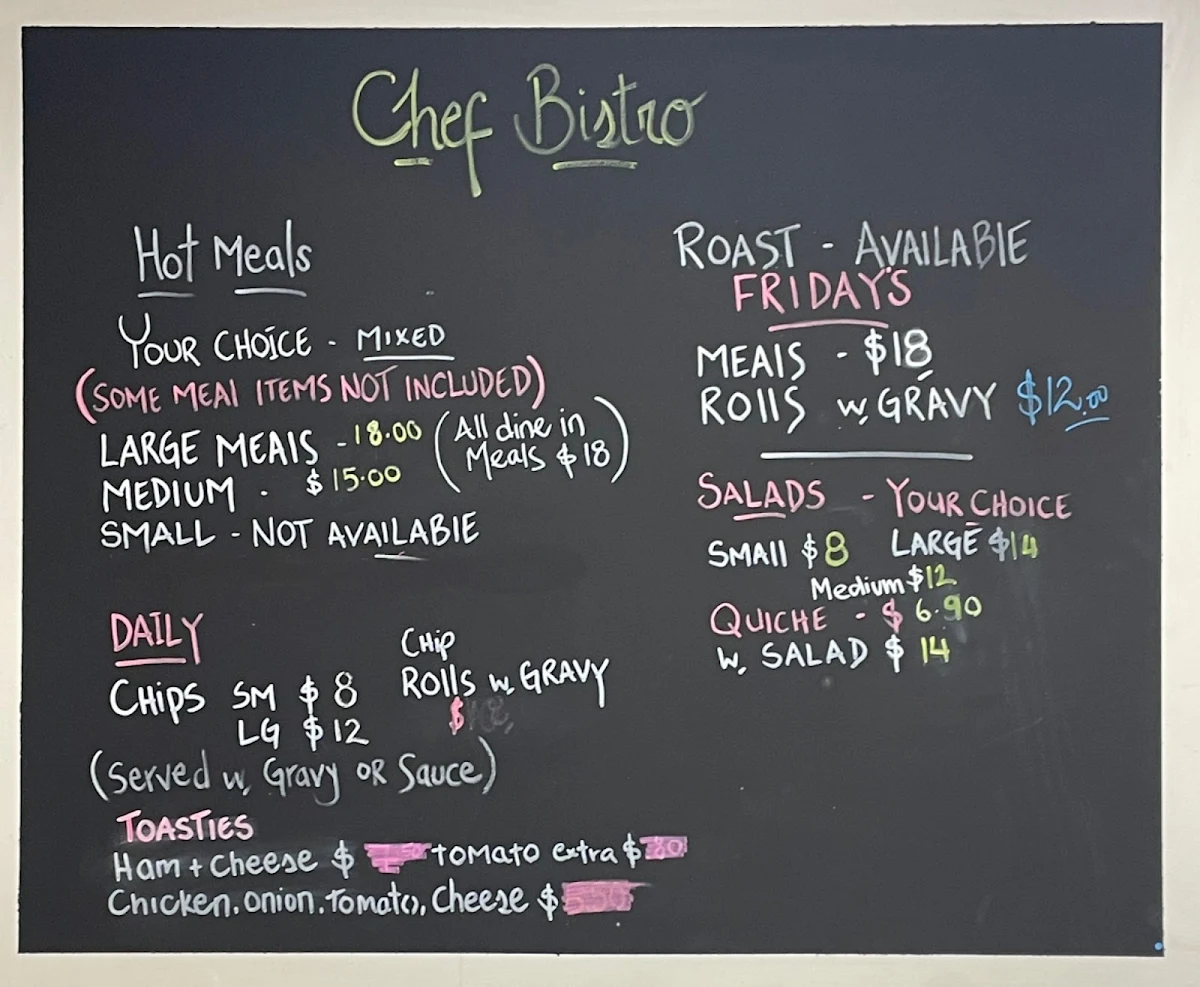 Chef Bistro
Hot Meals
YOUR CHOICE - MIXED
(SOME MEAL ITEMS NOT INCLUDED)
LARGE MEALS - 18.00 (All dine in Meals $18)
MEDIUM - $15.00
SMALL - NOT AVAILABLE
DAILY
CHIPS SM $8
LG $12
(Served w, Gravy OR Sauce)
CHIP
ROLLS w, GRAVY
$
TOASTIES
Ham + Cheese $ TOMATO extra $
Chicken, Onion, Tomato, Cheese $
ROAST - AVAILABLE
FRIDAY'S
MEALS - $18
ROLLS w, GRAVY $12.00
SALADS - YOUR CHOICE
SMALL $8 LARGE $14
Medium $12
QUICHE - $6.90
W, SALAD $14